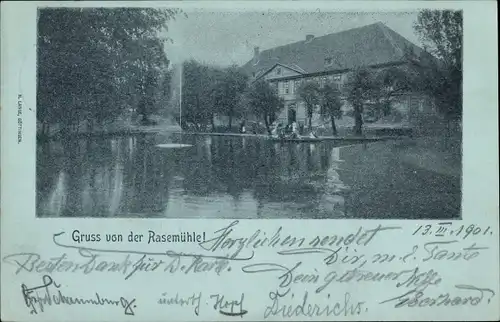 R. LANGE, GÖTTINGEN.
Gruss von der Rasemühle!
13. III. 1901.
Herzlichen sendet Dir, m. l. Tante
Besten Dank für D. Karte. Dein getreuer Neffe
unterth. Hopf Diederichs. Eberhard.